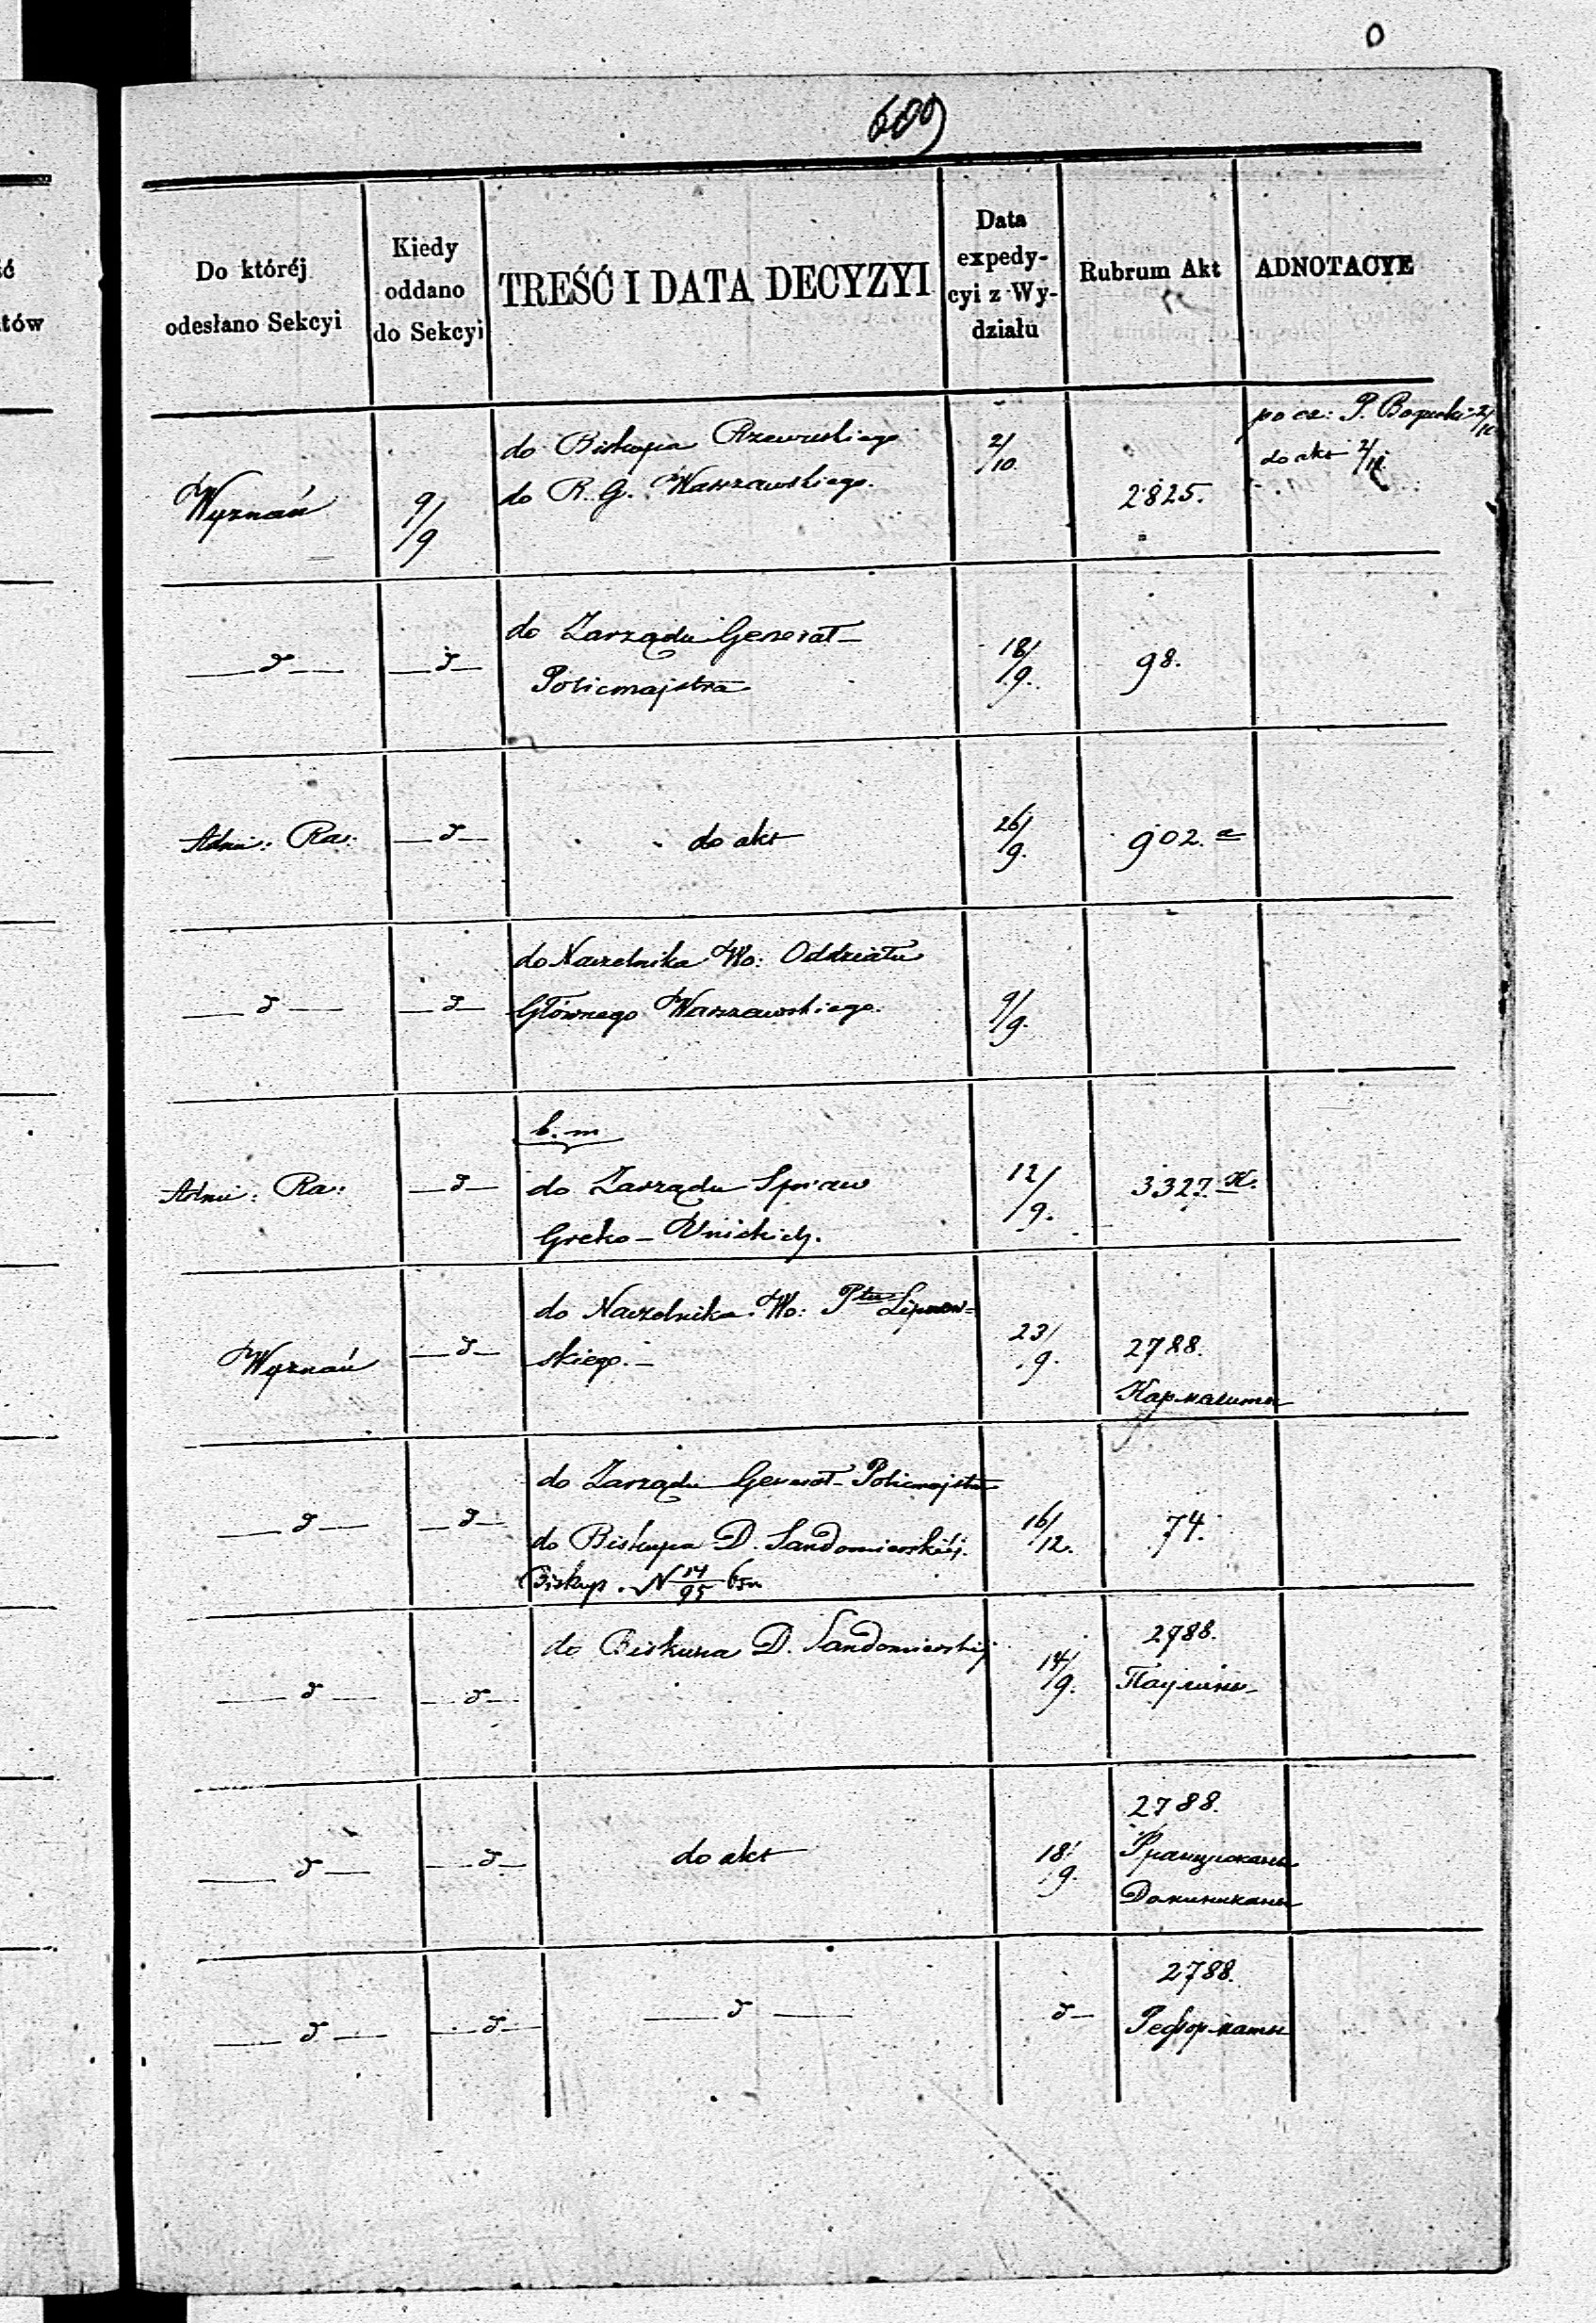 609
ść
tów
Do któréj
odesłano Sekcyi
Kiedy
oddano
do Sekcyi
TREŚĆ I DATA DECYZYI
Data
expedy-
cyi z Wy-
działu
Rubrum Akt
ADNOTACYE
Wyznań
9/9
do Biskupa Rzewuskiego
do R. G. Warszawskiego.
2/10.
2825.
po cz: P. 2/10
do akt
— d —
— d —
do Zarządu Generał-
Policmajstra
18/9.
98.
Admi: Ra:
— d —
do akt
26/9.
902. a
— d —
— d —
do Naczelnika Wo: Oddziału
Głównego Warszawskiego.
9/9.
Admi: Ra:
— d —
b. m
do Zarządu Spraw
Greko-Unickich.
12/9.
3327.
Wyznań
— d —
do Naczelnika Wo: Ptu Lipnow-
skiego.-
23/9.
2788.
Кармалиты
— d —
— d —
do Zarządu Generał-Policmajstra
do Biskupa D. Sandomierskiéj.
Biskup. N 14/95
16/12.
74.
— d —
— d —
do Biskupa D. Sandomierskiéj
14/9.
2788.
Паулины
— d —
— d —
do akt
18/9.
2788.
Францискане
Доминикане
— d —
— d —
— d —
d —
2788.
Реформаты